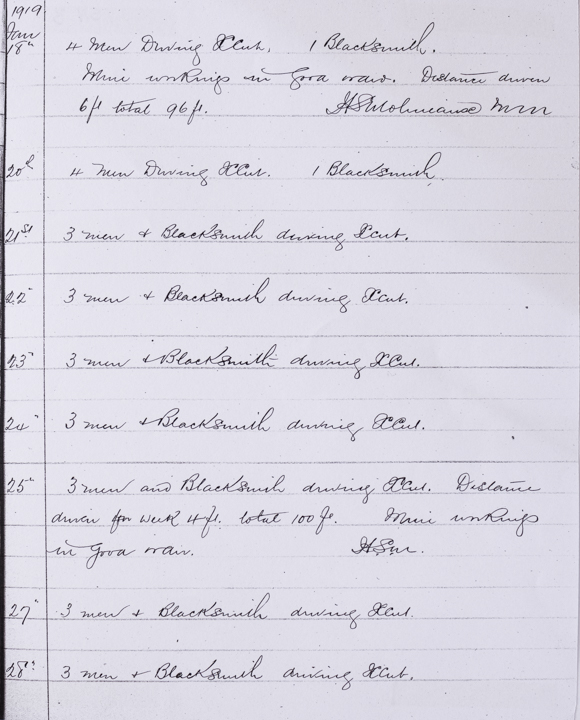 1919
Jan
18th 4 Men Driving XCut. 1 Blacksmith.
Mine workings in good order. Distance driven
6ft total 96ft. Mm
20th 4 Men Driving XCut. 1 Blacksmith.
21st 3 men & Blacksmith driving Xcut.
22" 3 men & Blacksmith driving Xcut.
23" 3 men & Blacksmith driving XCut.
24" 3 men & Blacksmith driving XCut.
25" 3 men and Blacksmith driving XCut. Distance
driven for week 4ft. total 100ft. Mine workings
in good order. HSM.
27" 3 men & Blacksmith driving XCut.
28" 3 men & Blacksmith driving XCut.